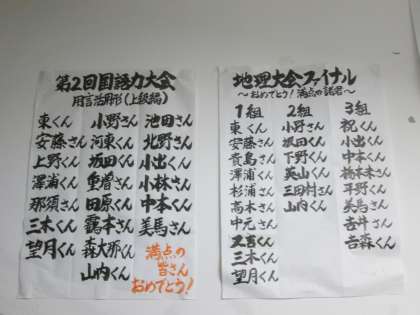 第2回国語力大会
用言活用形(上級編)
東くん 小野さん 池田さん
安藤さん 河東くん 北野さん
上野くん 坂田くん 小出くん
澤浦くん 重増さん 小林さん
那須さん 田原くん 中本くん
三木くん 靍本さん 美馬さん
望月くん 森大那くん 満点の
山内くん 皆さん
おめでとう!
地理大会ファイナル
〜おめでとう!満点の諸君〜
1組 2組 3組
東くん 小野さん 祝くん
安藤さん 坂田くん 小出くん
貴島さん 下野くん 中本くん
澤浦くん 英山くん 橋本未さん
杉浦さん 三田村さん 平野くん
高木さん 山内くん 美馬さん
中元さん 吉井さん
又吉くん 吉森くん
三木くん
望月くん